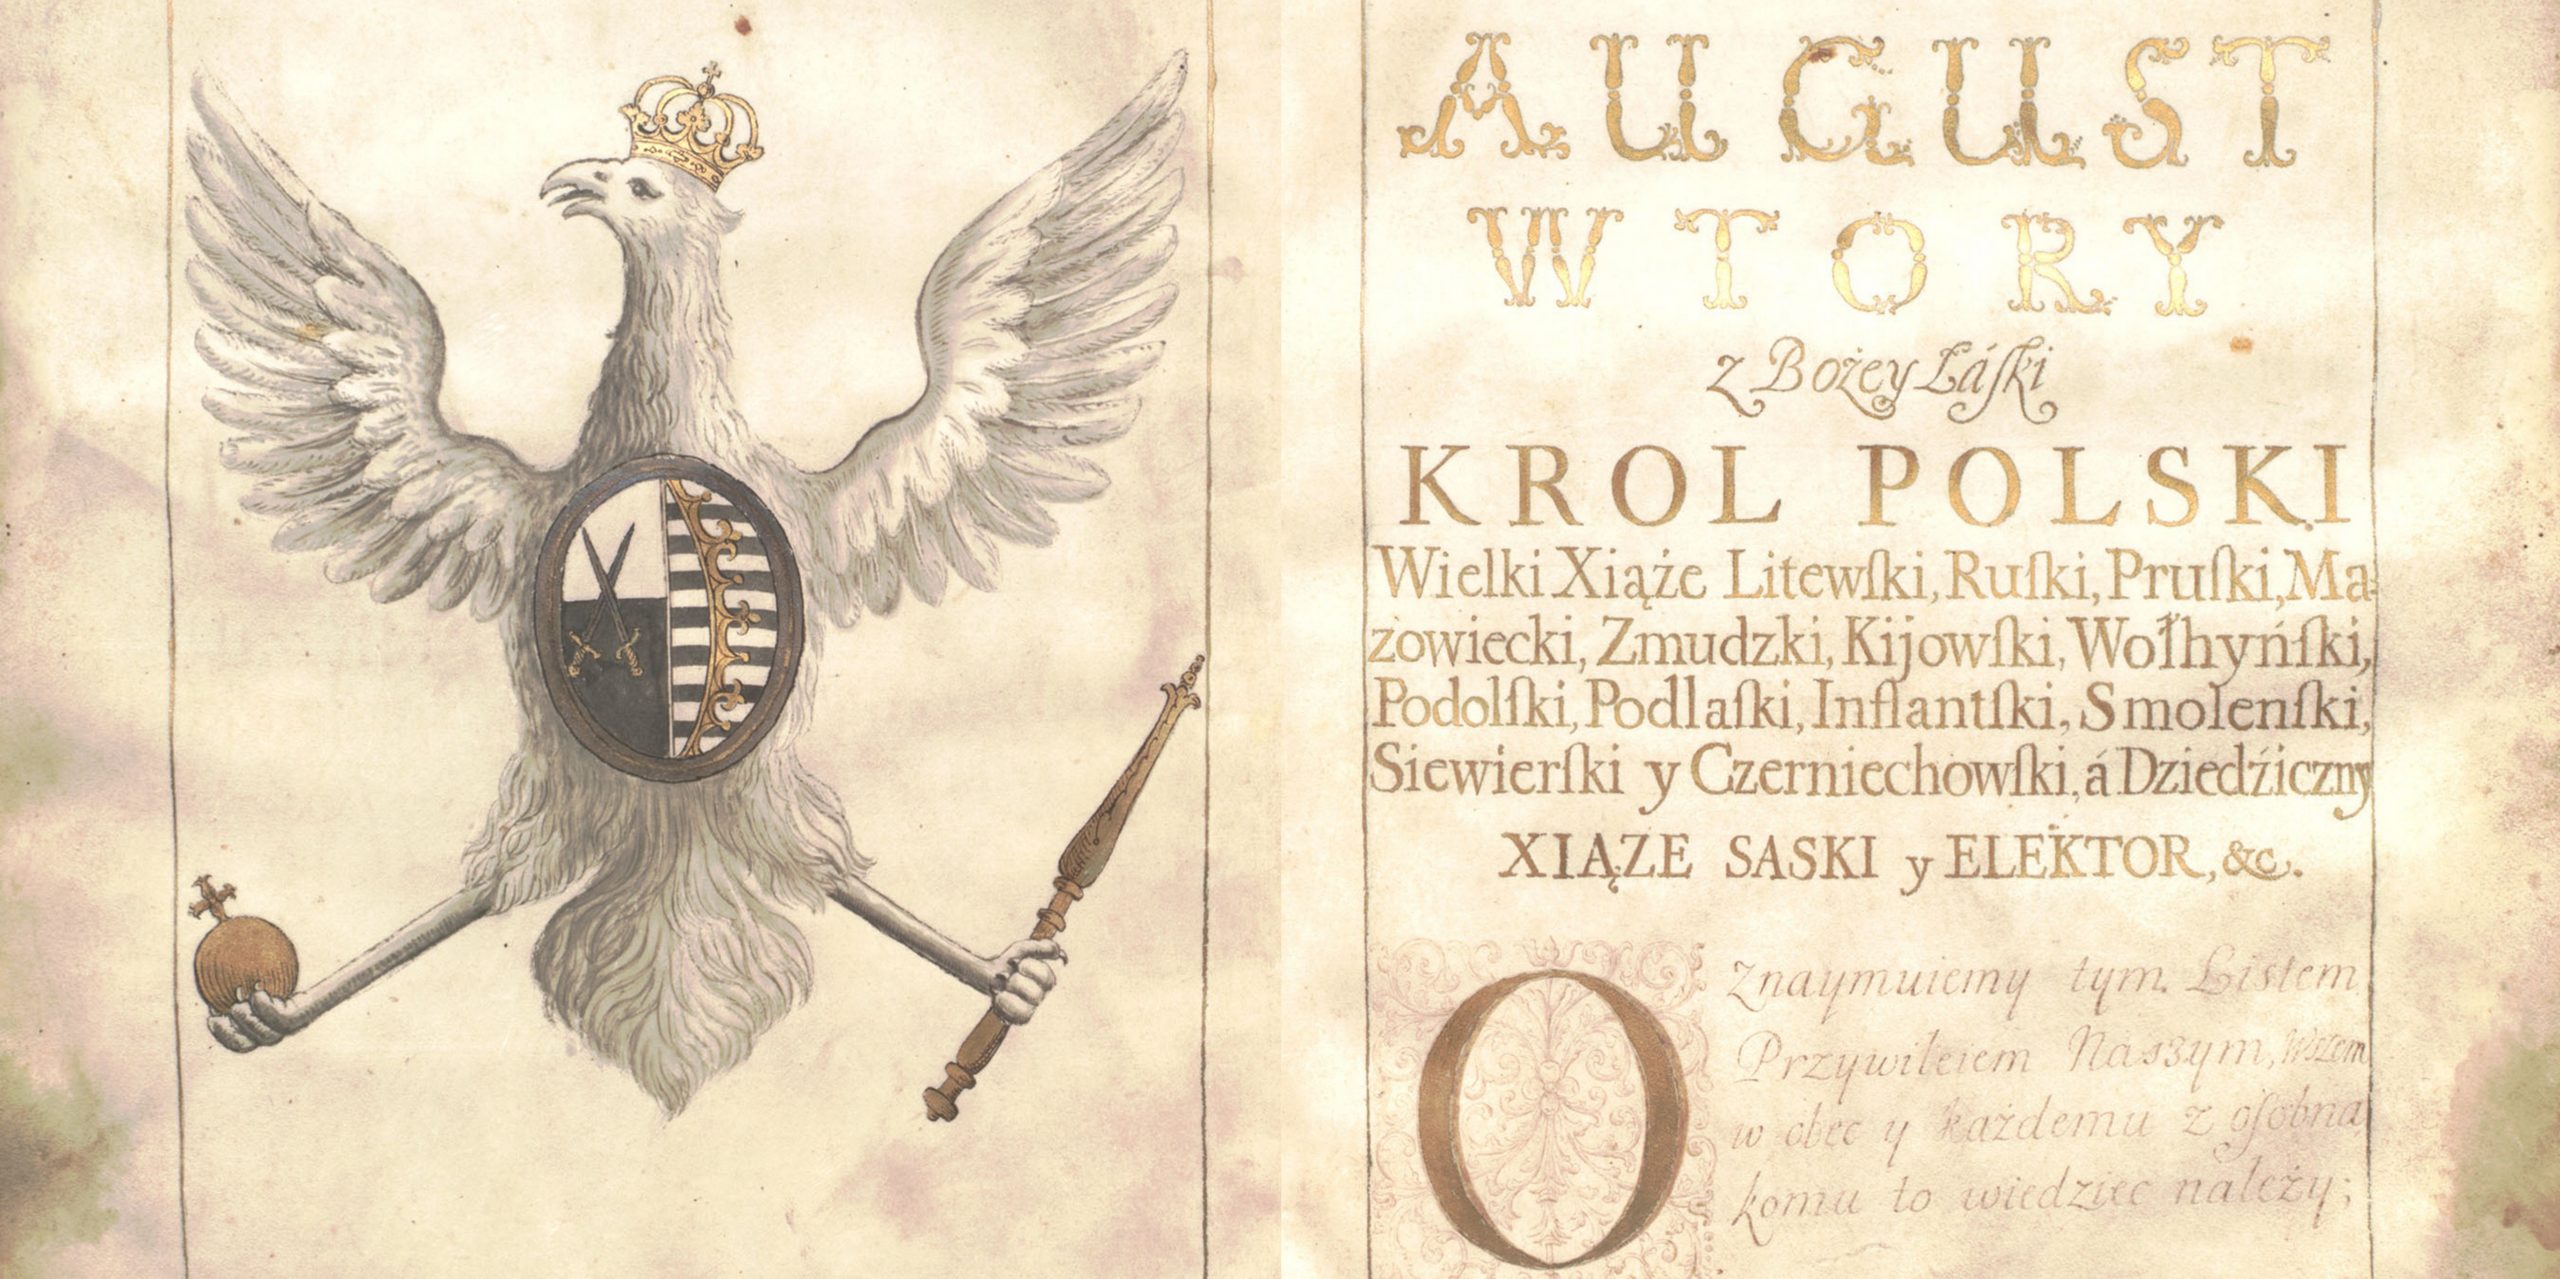 AUGUST
WTORY
z Bożey Łáſki
KROL POLSKI
Wielki Xiąże Litewſki, Ruſki, Pruſki, Ma-
zowiecki, Zmudzki, Kijowſki, Wołhyńſki,
Podolſki, Podlaſki, Inflantſki, Smolenſki,
Siewierſki y Czerniechowſki, á Dziedźiczny
XIĄZE SASKI y ELEKTOR, &c.
Oznaymuiemy tym Listem
Przywileiem Naszym, Wszem
w obec y każdemu z oſobna
komu to wiedziec należy;